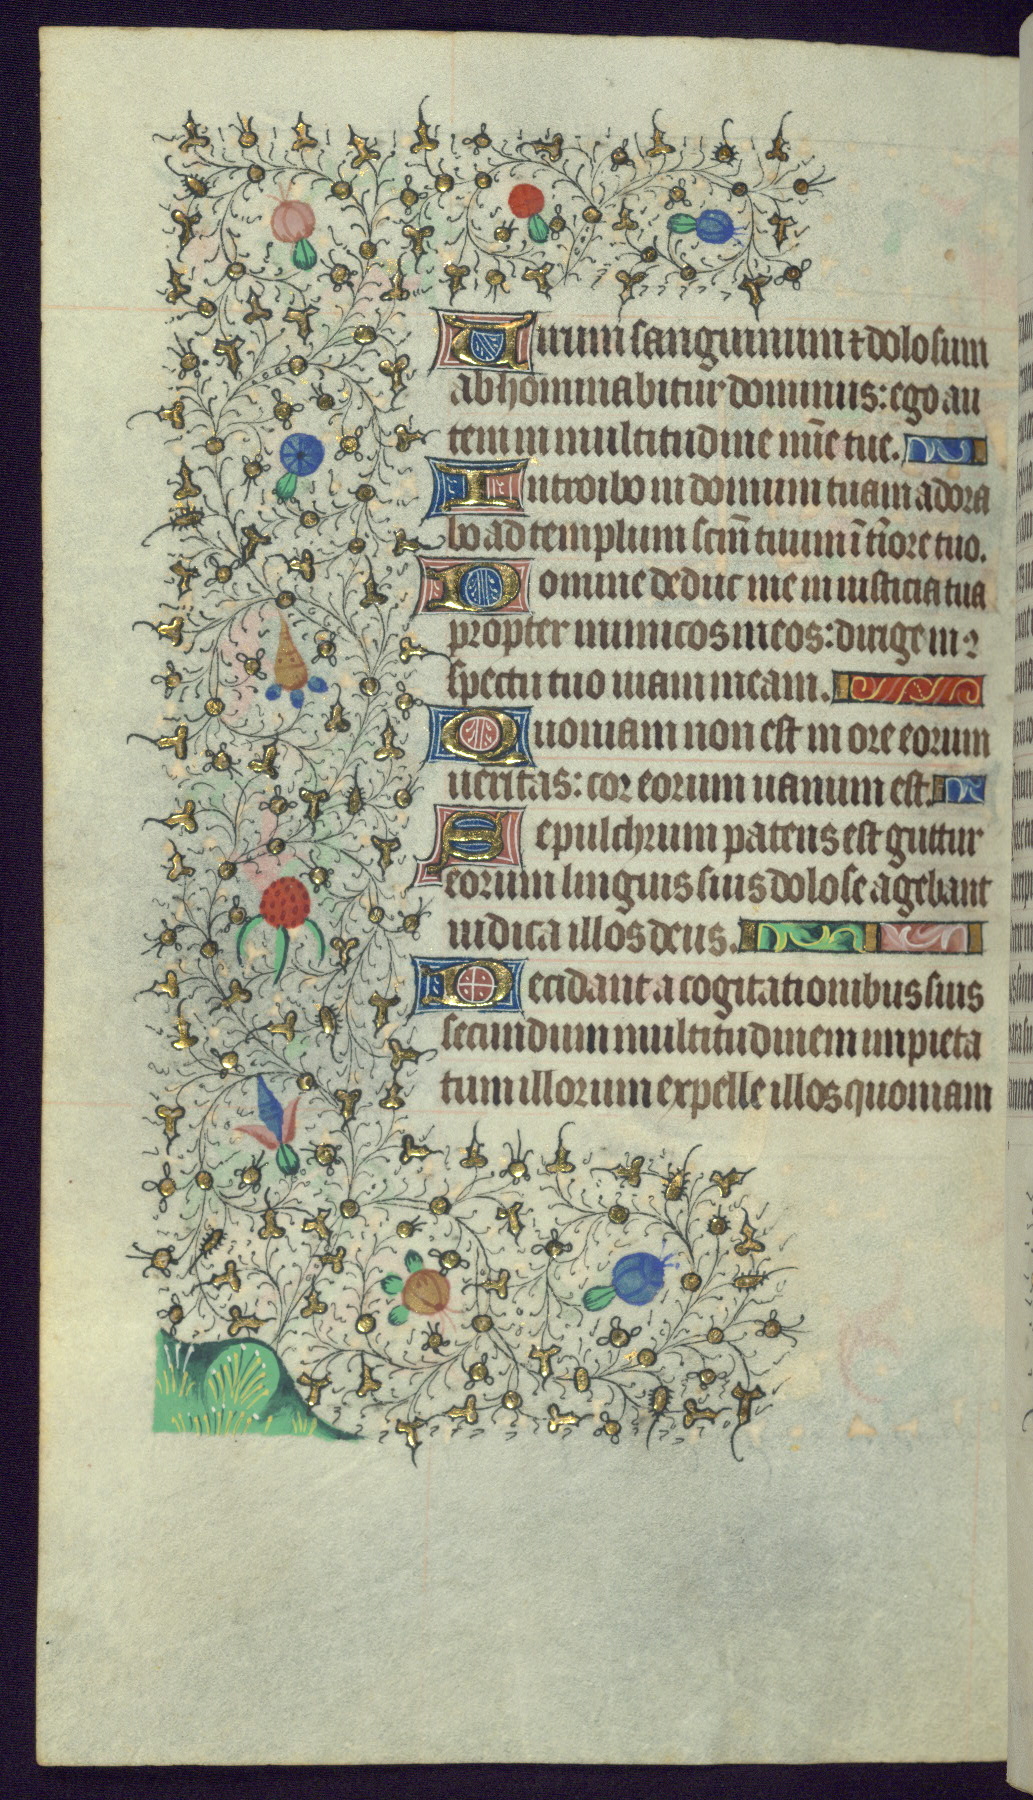 Uirum sanguinum ⁊ dolosum
abhominabitur dominus: ego au
tem in multitudine mīe tue.
Introibo in domum tuam adora
bo ad templum scm̄ tuum ī tīore tuo.
Domine deduc me in iusticia tua
propter inimicos meos: dirige in ꝯ
spectu tuo uiam meam.
Quoniam non est in ore eorum
ueritas: cor eorum uanum est.
Sepulchrum patens est guttur
eorum linguis suis dolose agebant
iudica illos deus.
Decidant a cogitationibus suis
secundum multitudinem impieta
tum illorum expelle illos quoniam